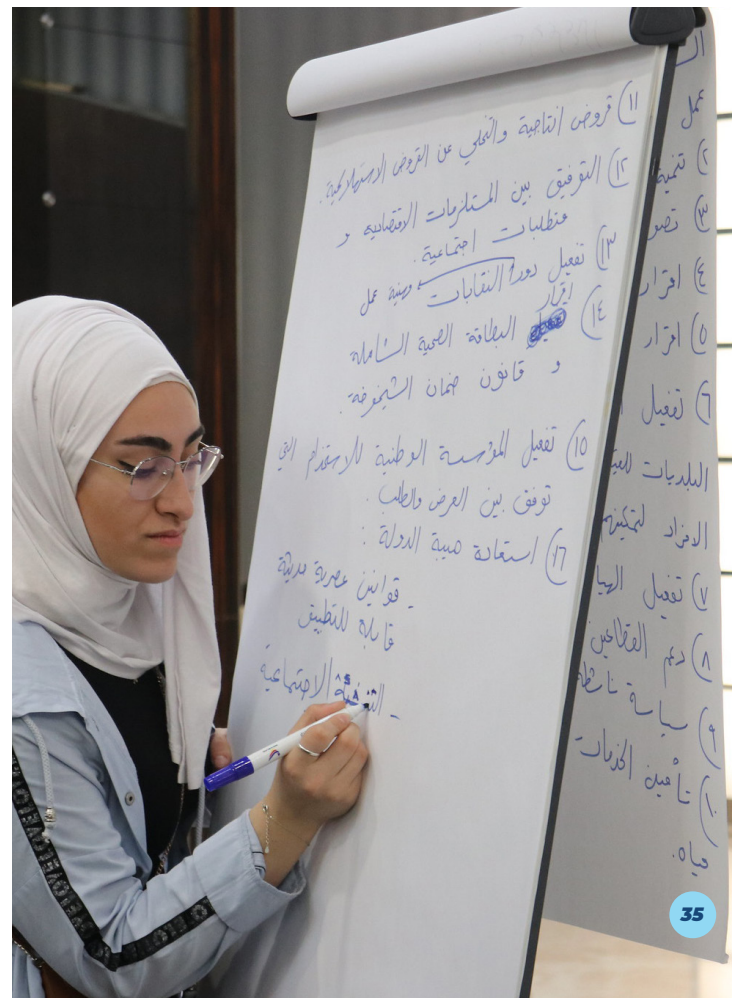 ١١) قروض انتاجية والتخلي عن القروض الاستهلاكية.
١٢) التوفيق بين المستلزمات الاقتصادية و
متطلبات اجتماعية.
١٣) تفعيل دور النقابات وبنية عمل
١٤) إقرار البطاقة الصحية الشاملة
و قانون ضمان الشيخوخة.
١٥) تفعيل المؤسسة الوطنية للاستخدام التي
توفق بين العرض والطلب.
١٦) استعادة هيبة الدولة :
- قوانين عصرية مدنية
قابلة للتطبيق
- الاجتماعية
عمل
٢) تنمية
٣)
٤) اقرار
٥) اقرار
٦) تفعيل
البلديات
الافراد لتمكينهم
٧) تفعيل
٨) دعم القطاعين
٩) سياسة
١٠) تأمين الخدمات
مياه.
35